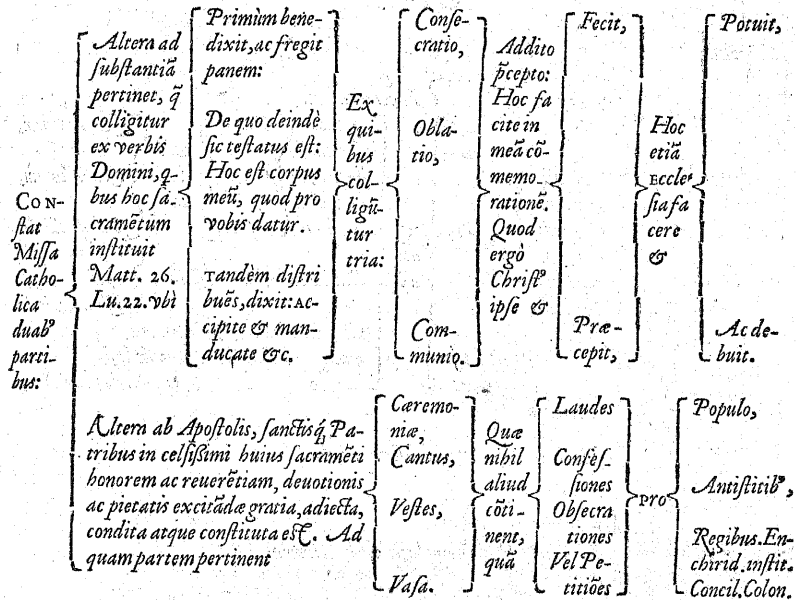 CON-
ſtat
Miſſa
Catho-
lica
duabꝰ
parti-
bus:
Altera ad
ſubſtantiã
pertinet, q̃
colligitur
ex verbis
Domini, q-
bus hoc ſa-
cramẽtum
inſtituit
Matt. 26.
Lu. 22. vbì
Primùm bene-
dixit, ac fregit
panem:
De quo deindè
ſic teſtatus eſt:
Hoc eſt corpus
meũ, quod pro
vobis datur.
Tandèm diſtri
buẽs, dixit: Ac-
cipite & man-
ducate &c.
Ex
qui-
bus
col-
ligũ-
tur
tria:
Conſe-
cratio,
Obla-
tio,
Com-
munio.
Addito
p̃cepto:
Hoc fa
cite in
meã cõ-
memo-
rationẽ.
Quod
ergò
Chriſtꝰ
ipſe &
Fecit,
Præ-
cepit,
Hoc
etiã
Eccle-
ſia fa
cere
&
Potuit,
Ac de-
buit.
Altera ab Apoſtolis, ſanctisq́; Pa-
tribus in celſiſſimi huius ſacramẽti
honorem ac reuerẽtiam, deuotionis
ac pietatis excitãdæ gratia, adiecta,
condita atque conſtituta eſt. Ad
quam partem pertinent
Cæremo-
niæ,
Cantus,
Veſtes,
Vaſa.
Quæ
nihil
aliud
cõti-
nent,
quã
Laudes
Confeſ-
ſiones
Obſecra
tiones
Vel Pe-
titiões
pro
Populo,
Antiſtitibꝰ,
Regibus. En-
chirid. inſtit.
Concil. Colon.